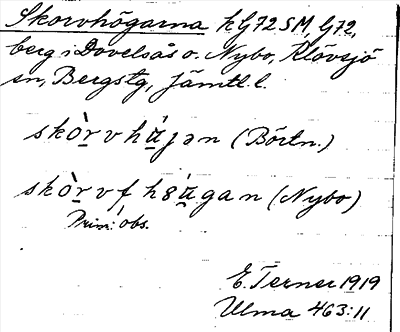 Skorvhögarna k G72 SM, G72,
berg i Dovelsås o. Nybo, Klövsjö
sn, Bergstg, Jämtl. l.
skò̱rvhá̱jan (Börtn.)
skò̱rvf, hsá̱gan (Nybo)
Prim! obs.
E. Terner 1919
Ulma 463:11